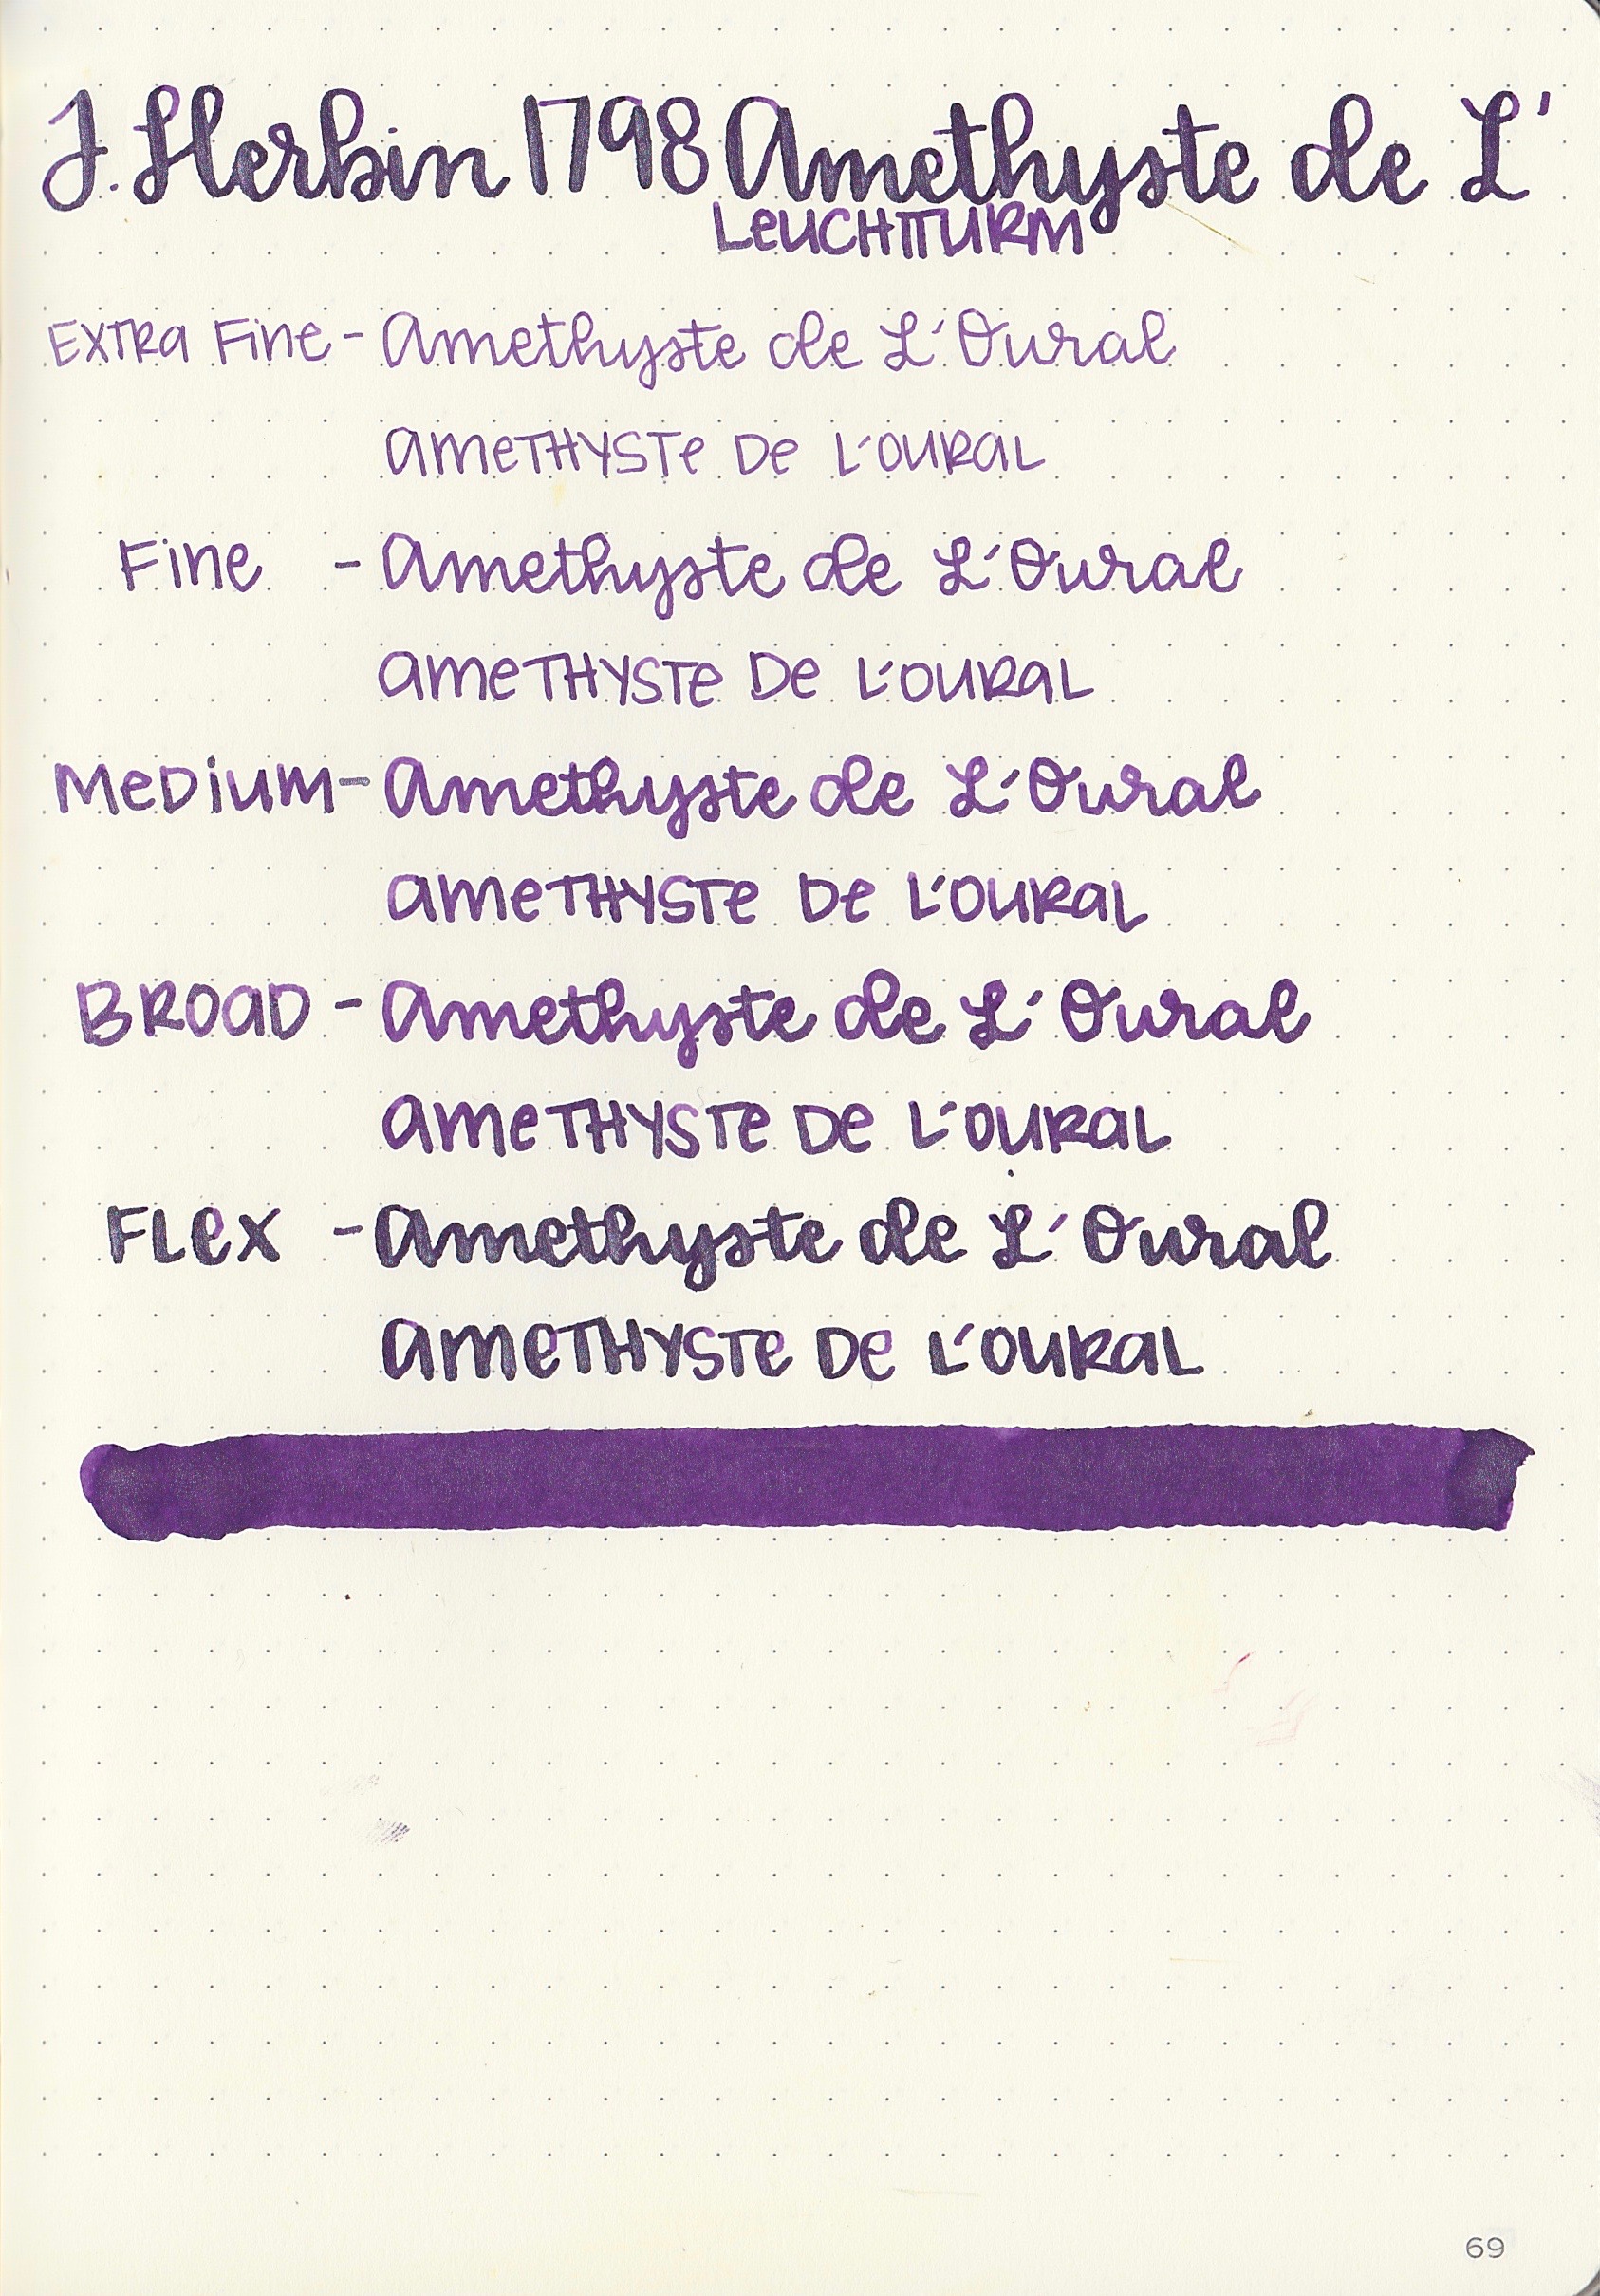 J. Herbin 1798 Amethyste de L'
LeUCHTTURM
EXTRA FINe - Amethyste de L'Oural
AMeTHYSTe De L'OURAL
FINe - Amethyste de L'Oural
AMeTHYSTe De L'OURAL
MeDIUM - Amethyste de L'Oural
AMeTHYSTe De L'OURAL
BROAD - Amethyste de L'Oural
AMeTHYSTe De L'OURAL
FLeX - Amethyste de L'Oural
AMeTHYSTe De L'OURAL
69